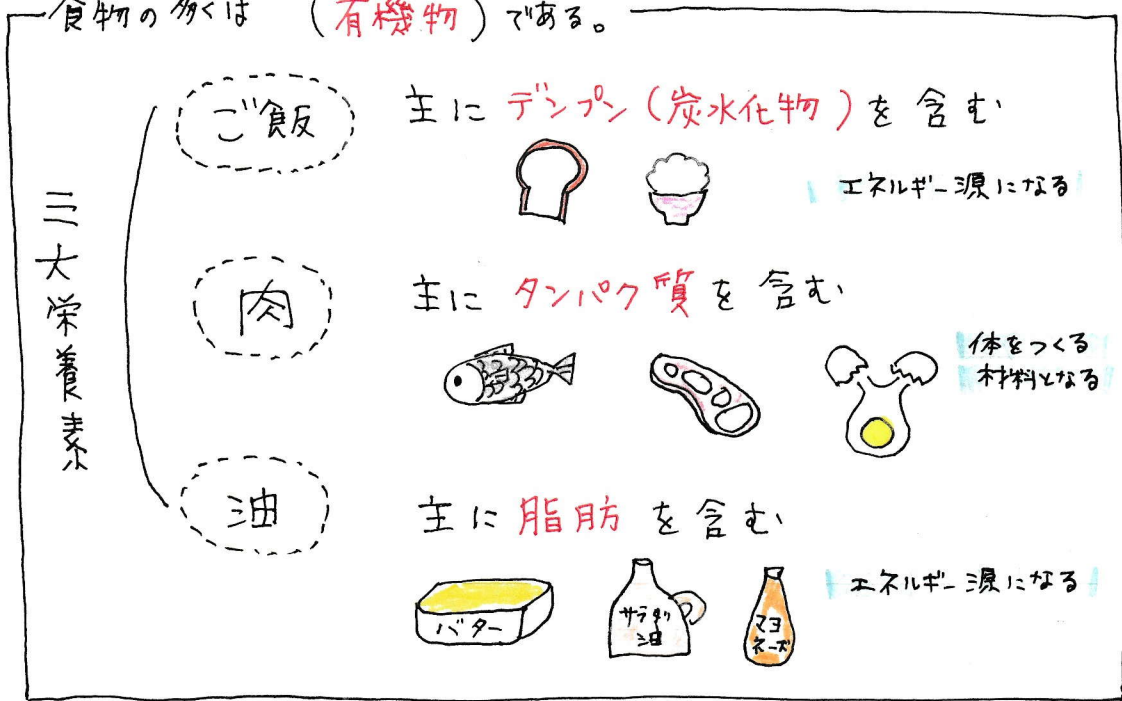 食物の多くは (有機物)である。
三大栄養素
ご飯 主に デンプン(炭水化物)を含む
エネルギー源になる
肉 主に タンパク質を含む
体をつくる
材料となる
油 主に 脂肪を含む
エネルギー源になる
バター
サラダ
油
マヨ
ネーズ